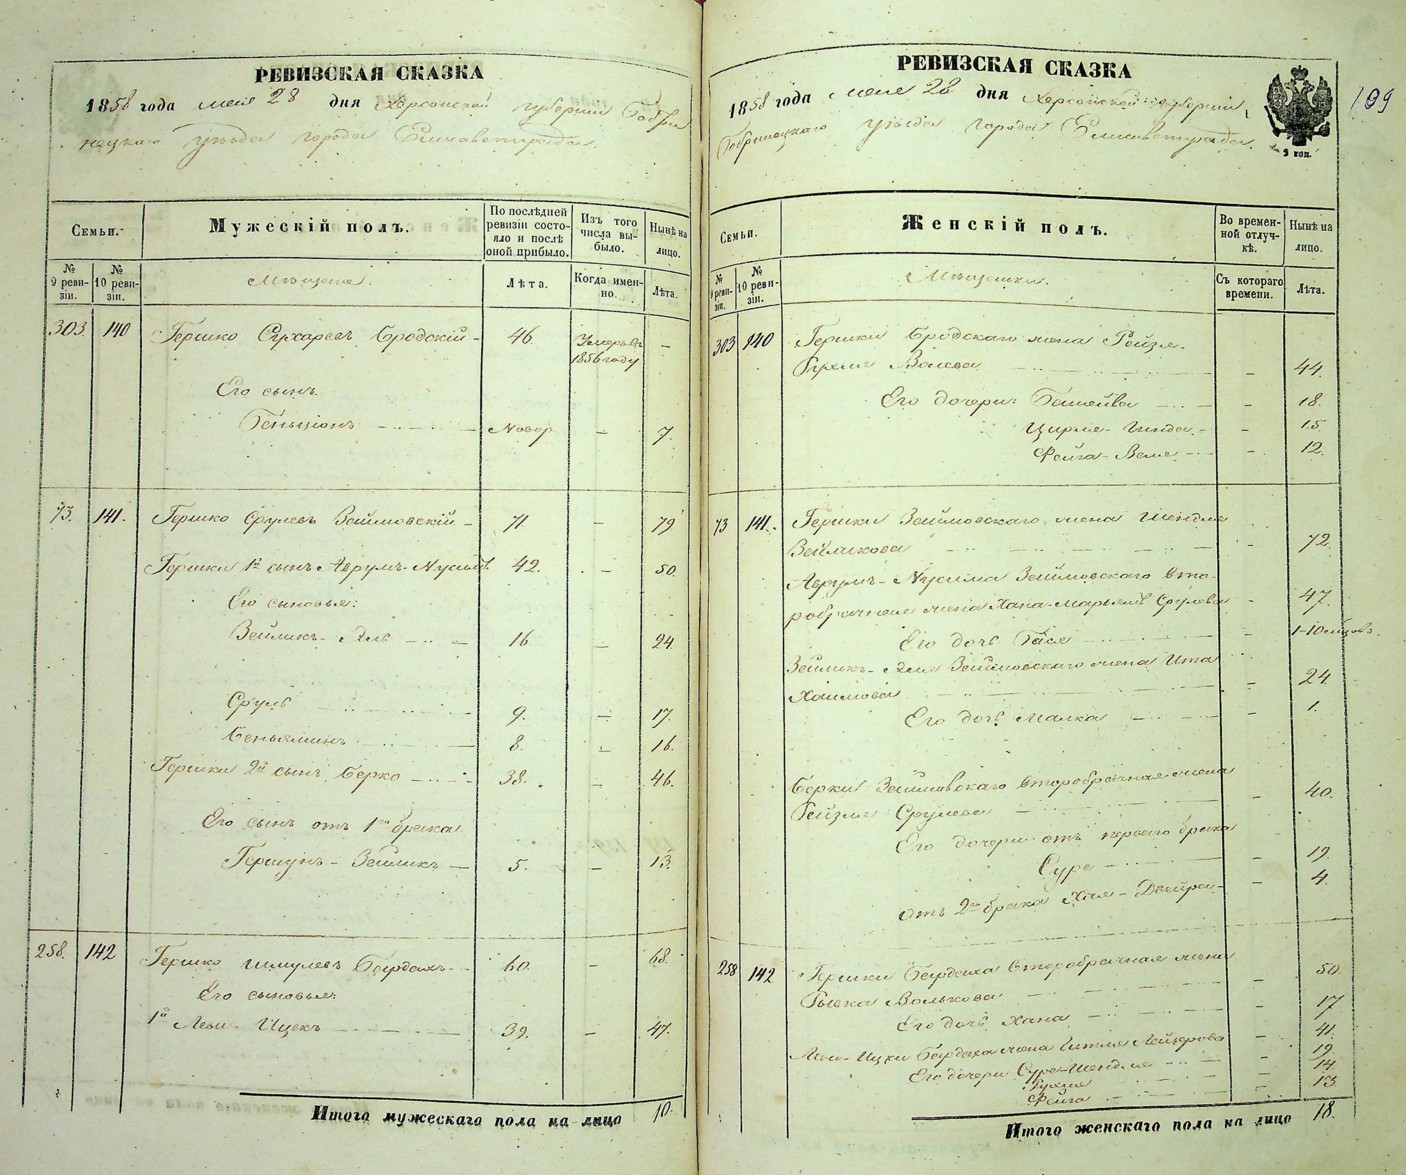 РЕВИЗСКАЯ СКАЗКА
1858 года мая 28 дня Херсонской губернии Бобри
нецкаго уѣзда города Елисаветграда.
Семьи.
Мужескій полъ.
По послѣдней ревизіи состояло и послѣ оной прибыло.
Изъ того числа выбыло.
Нынѣ на лицо.
№ 9 ревизіи.
№ 10 ревизіи.
Мѣщане.
Лѣта.
Когда именно.
Лѣта.
303. 140 Гершко Бродскій 46. Умеръ въ 1856 году —
Его сынъ
Бенціонъ Новор. — 7.
73. 141. Гершко Срулевъ Зеймовскій 71 — 79
Гершки 1й сынъ Аврумъ-Нусимъ 42. — 50.
Его сыновья:
Зейликъ 16 — 24.
Сруль 9. — 17.
Беньяминъ 8. — 16.
Гершки 2й сынъ Берко 38. — 46.
Его сынъ отъ 1го брака
Гершунъ-Зейликъ 5. — 13.
258. 142 Гершко Шмулевъ Бурдахъ 60. — 68.
Его сыновья:
1й Леви-Ицекъ 39. — 47.
Итого мужескаго пола на лицо 10.
РЕВИЗСКАЯ СКАЗКА
1858 года мая 28 дня Херсонской губерніи
Бобринецкаго уѣзда города Елисаветграда.
109
2 коп.
Семьи.
Женскій полъ.
Во временной отлучкѣ.
Нынѣ на лицо.
№ 9 ревизіи.
№ 10 ревизіи.
Мѣщанки.
Съ котораго времени.
Лѣта.
303 140 Гершки Бродскаго жена Рейзя
44.
Его дочери: Башейва — 18.
Цирля — 15.
Фейга — 12.
73 141. Гершки Зеймовскаго жена Шендля
Зейликова — 72.
Аврумъ-Нусима Зеймовскаго вто-
робрачная жена Хана-Марьямъ Срулева — 47.
Его дочь Бася — 1-10 мѣсовъ.
Зейликъ Зеймовскаго жена Ита
Хаимова — 24
Его дочь Малка — 1.
Берки Зеймовскаго второбрачная жена
Рейзля Срулева — 40.
Его дочери отъ перваго брака
Сура — 19.
отъ 2го брака Хая-Двейра — 4.
258 142 Гершки Бурдаха второбрачная жена
Рывка Волькова — 50
Его дочь Хана — 17
Леви-Ицки Бурдаха жена Гитля Лейзерова — 41.
Его дочери Сура-Шендля — 19.
Рухля — 14.
Фейга — 13.
Итого женскаго пола на лицо 18.